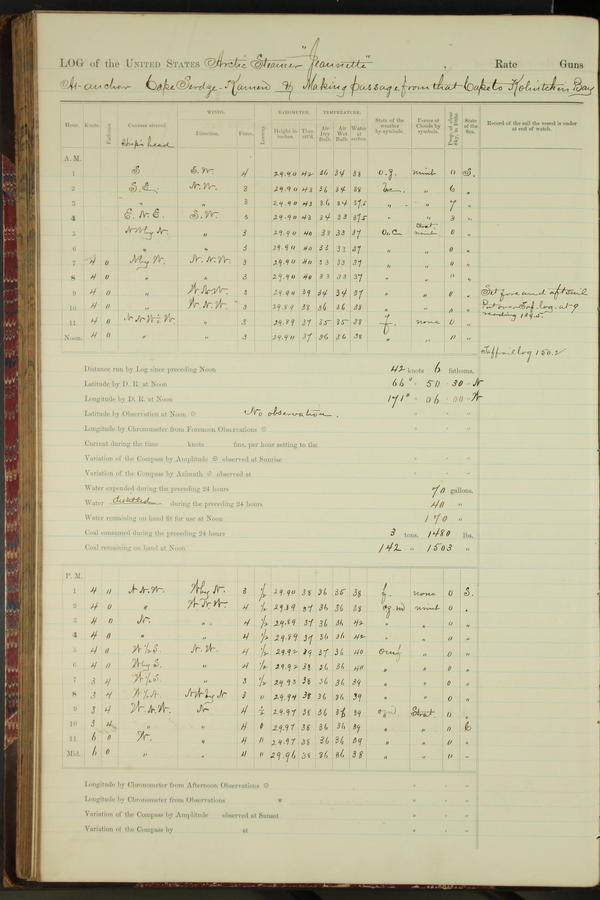 LOG of the UNITED STATES Arctic Steamer "Jeannette" Rate Guns
At anchor Cape Serdze-Kamen & Making passage from that Cape to Koliutchin Bay
Hour. Knots. Fathoms. Courses steered. WINDS. Direction. Force. Leeway. BAROMETER. Height in inches. Ther. att'd. TEMPERATURE. Air Dry Bulb. Air Wet Bulb. Water at surface. State of the weather by symbols. Forms of Clouds by symbols. Prop. of clear Sky, in 10ths. State of the Sea. Record of the sail the vessel is under at end of watch.
Ship's head
A. M.
1 S S.W. 4 29.90 42 36 34 38 o.g. nimb 0 S.
2 S.E. N.W. 3 29.90 43 36 34 38 " 6 "
3 " " 3 29.90 43 36 34 37.5 " " 7 "
4 E.N.E. S.W. 3 29.90 43 34 33 37.5 " " 3 "
5 NW by N. " 3 29.90 40 33 33 37 o.c. Strat. nimb 0 "
6 " " 3 29.90 40 33 33 37 " " 0 "
7 4 0 N by W. N.N.W. 3 29.90 40 33 33 37 " " 0 "
8 4 0 " " 3 29.90 40 33 33 37 " " 0 "
9 4 0 " W.N.W. 3 29.90 39 34 34 37 " " 0 " Set fore and aft sail
10 4 0 " W.N.W. 3 29.89 38 36 36 38 " " 0 " Put over Taf. log. at 9
reading 139.5.
11 4 0 N.N.W½W. " 3 29.89 37 35 35 38 f. none 0 "
Noon. 4 0 " " 3 29.90 37 36 36 38 " " 0 " Taffrail log 150.2
Distance run by Log since preceding Noon 42 knots 6 fathoms.
Latitude by D. R. at Noon 66° 50 30 N
Longitude by D. R. at Noon 171° 06 00 W
Latitude by Observation at Noon No observation.
Longitude by Chronometer from Forenoon Observations
Current during the time knots fms. per hour setting to the
Variation of the Compass by Amplitude observed at Sunrise
Variation of the Compass by Azimuth observed at
Water expended during the preceding 24 hours 70 gallons.
Water distilled during the preceding 24 hours 40 "
Water remaining on hand fit for use at Noon 170 "
Coal consumed during the preceding 24 hours 3 tons. 1480 lbs.
Coal remaining on hand at Noon 142 " 1503 "
P. M.
1 4 0 N.N.W. W by N. 3 ½ 29.90 38 36 35 38 f. none 0 S.
2 4 0 " W.N.W. 4 ½ 29.89 37 36 36 38 nimb 0 "
3 4 0 N. " 4 ½ 29.89 37 36 36 42 " " 0 "
4 4 0 " " 4 ½ 29.89 37 36 36 42 " " 0 "
5 4 0 W½S. N.W. 4 ½ 29.92 39 37 36 40 " 0 "
6 4 0 W by S. " 4 ½ 29.92 38 36 36 40 " " 0 "
7 3 4 W½S. " 3 ½ 29.93 38 36 36 39 " " 0 "
8 3 4 W½N. NW by N 3 " 29.94 38 36 36 39 " " 0 "
9 3 4 W.N.W. N 4 ½ 29.97 38 36 36 39 Strat. 0 "
10 3 4 " " 4 0 29.97 38 36 36 39 " " 0
11 6 0 W. " 4 0 29.97 38 36 36 39 " " 0 "
Mid. 6 0 " " 4 " 29.96 38 36 36 38 " " 0 "
Longitude by Chronometer from Afternoon Observations
Longitude by Chronometer from Observations
Variation of the Compass by Amplitude observed at Sunset
Variation of the Compass by at